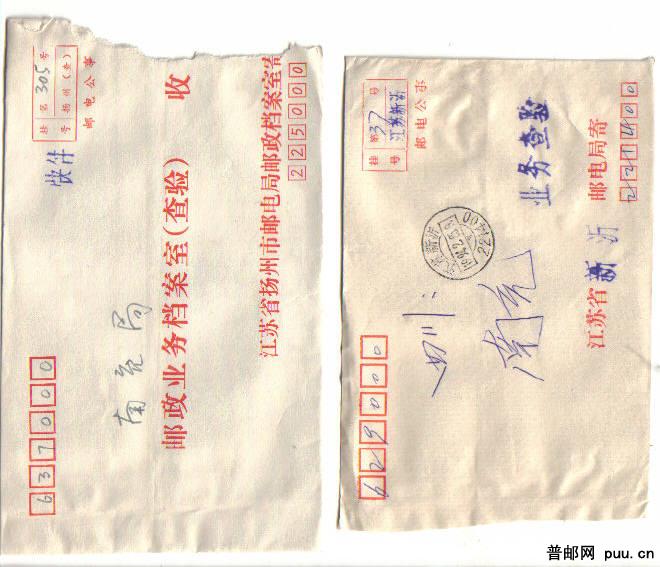 637000
南充局
邮政业务档案室(查验) 收
江苏省扬州市邮电局邮政档案室寄
225000
挂 第 305 号
号 扬州(查)
邮电公事
快件
629000
四川:
南充
业务查验
江苏省新沂 邮电局寄
221400
挂 第 37 号
号 江苏新沂
邮电公事
221400
普邮网 puu.cn